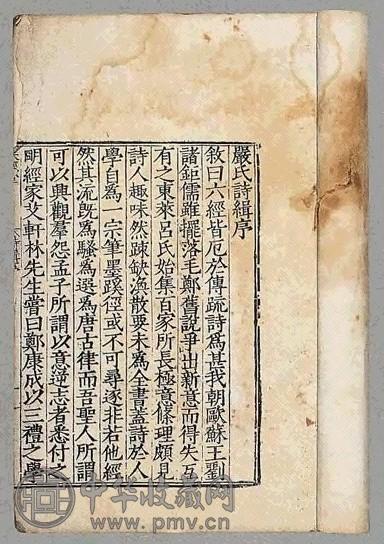 嚴氏詩緝序
敘曰六經皆厄於傳疏詩爲甚我朝歐蘇王劉
諸鉅儒雖擺落毛鄭舊說爭出新意而得失互
有之東萊呂氏始集百家所長極意條理頗見
詩人趣味然疎缺渙散要未爲全書蓋詩於人
學自爲一宗筆墨蹊徑或不可尋逐非若他經
然其流既爲騷爲選爲唐古律而吾聖人所謂
可以興觀羣怨孟子所謂以意逆志者悉付之
明經家艾軒林先生嘗曰鄭康成以三禮之學
中华收藏网
www.pmv.cn